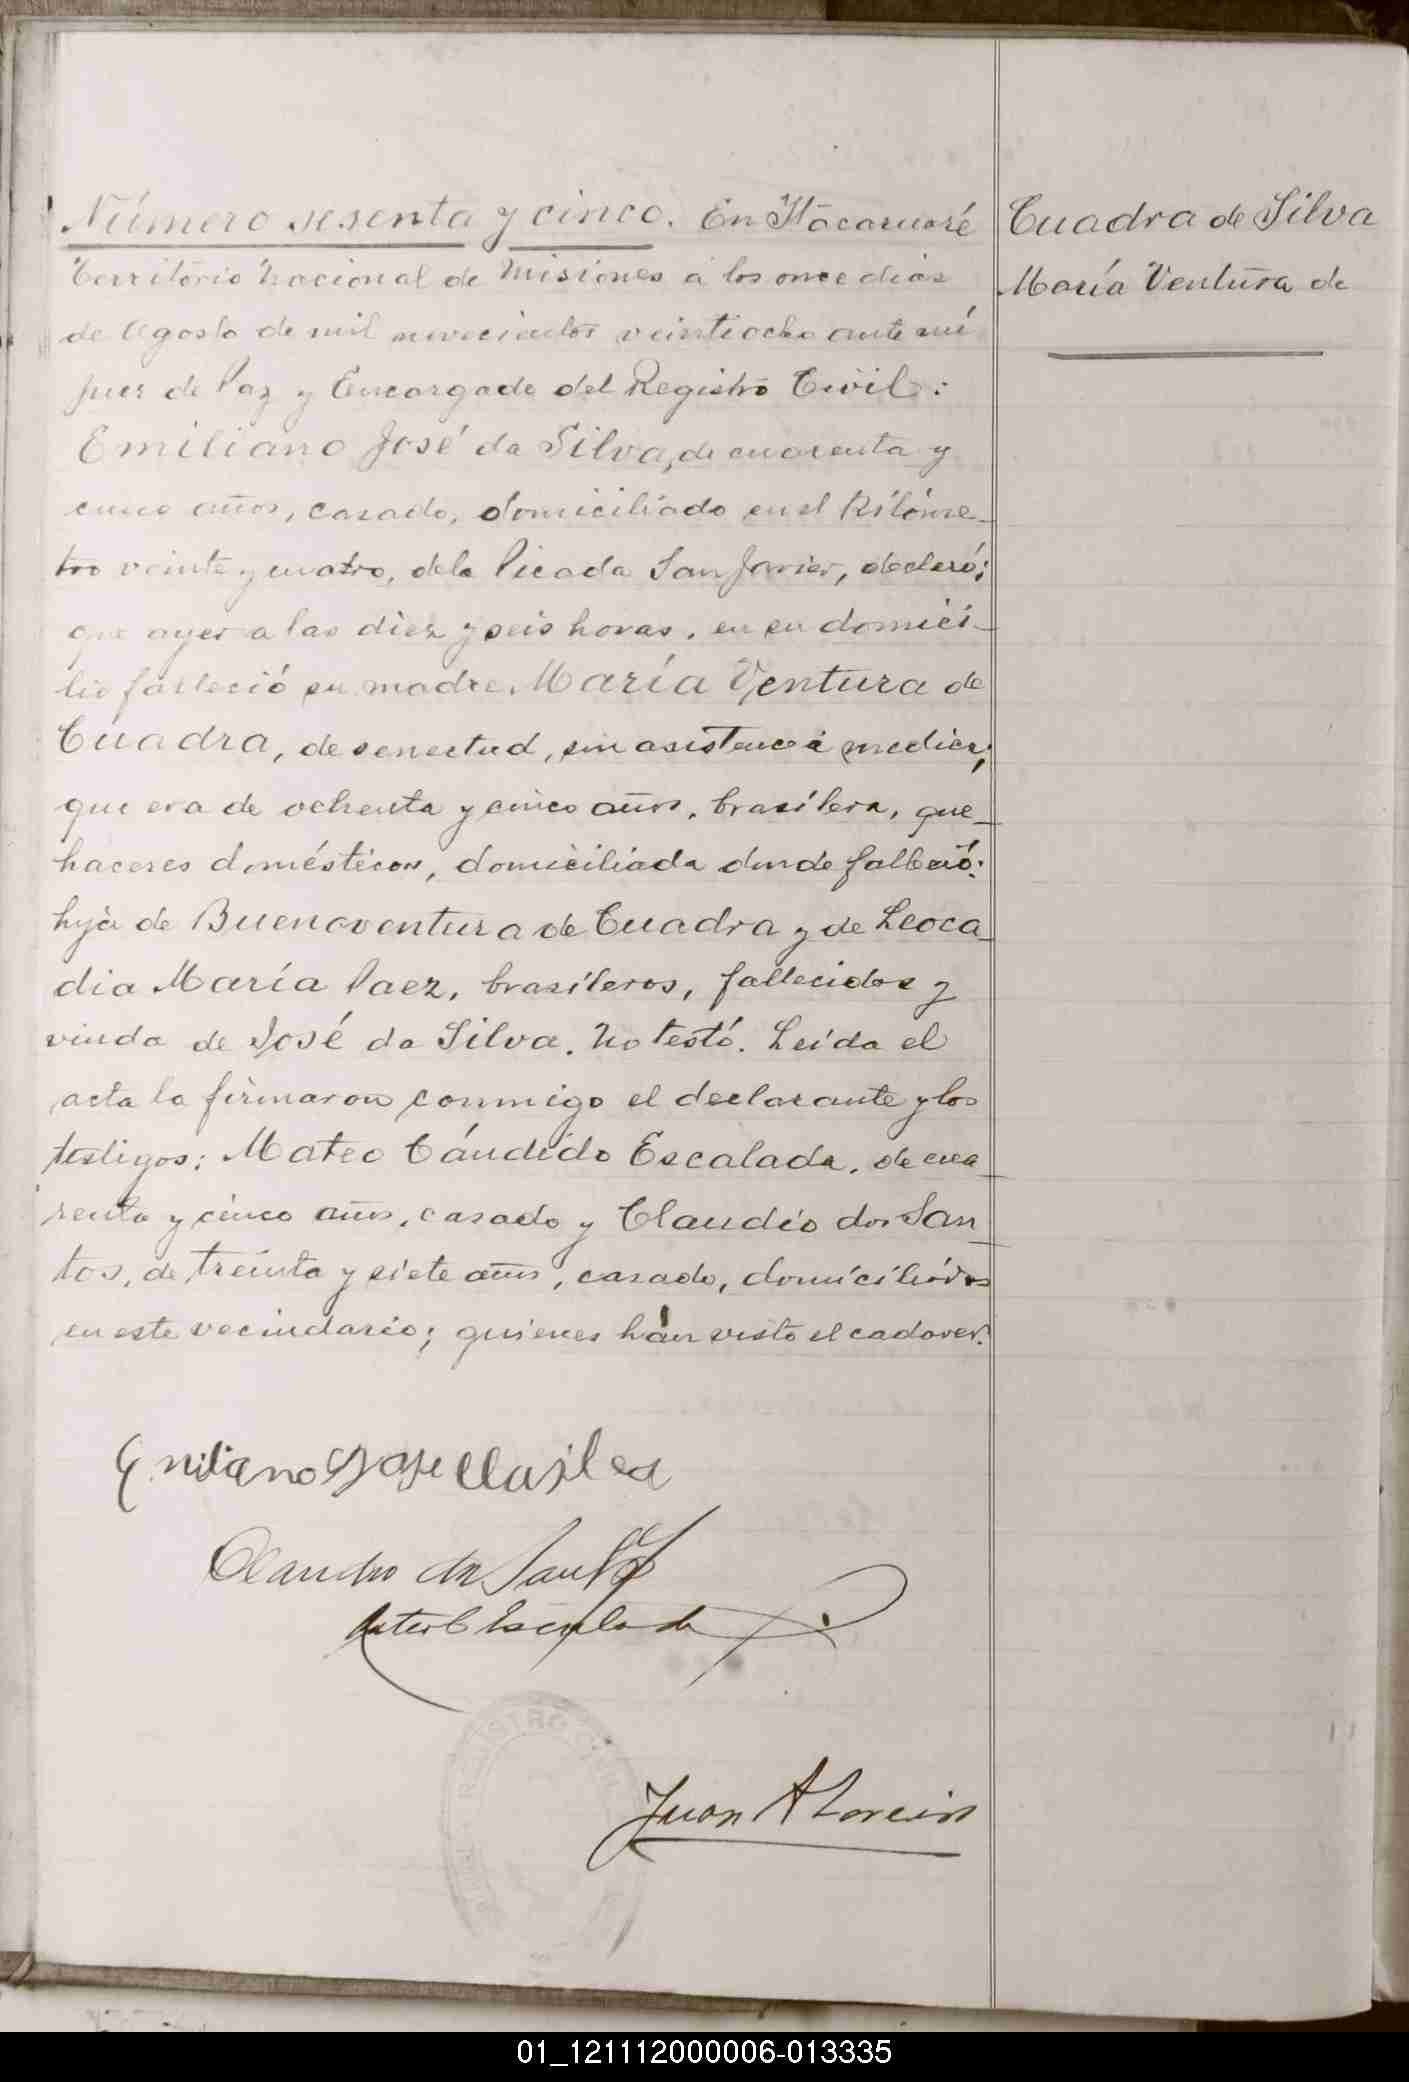 Número sesenta y cinco. En Itacaruaré
Territorio Nacional de Misiones a los once dias
de Agosto de mil novecientos veintiocho ante mí
Juez de Paz y Encargado del Registro Civil:
Emiliano José da Silva, de cuarenta y
cinco años, casado, domiciliado en el Kilóme-
tro veinte y cuatro, dela Picada San Javier, declaró;
que ayer a las diez y seis horas, en su domici-
lio falleció su madre María Ventura de
Cuadra, de senectud, sin asistencia medica;
que era de ochenta y cinco años, brasilera, que-
haceres domésticos, domiciliada donde falleció:
hija de Buenaventura de Cuadra y de Leoca-
dia María Paez, brasileros, fallecidos y
viuda de José da Silva. No testó. Leída el
acta la firmaron conmigo el declarante y los
testigos: Mateo Cándido Escalada, de cua-
renta y cinco años, casado y Claudio dos San-
tos, de treinta y siete años, casado, domiciliados
en este vecindario; quienes han visto el cadaver.
Cuadra de Silva
María Ventura de
Emiliano Jose da silva
Claudio do Santos
Escalada
REGISTRO CIVIL
Juan A
01_121112000006-013335